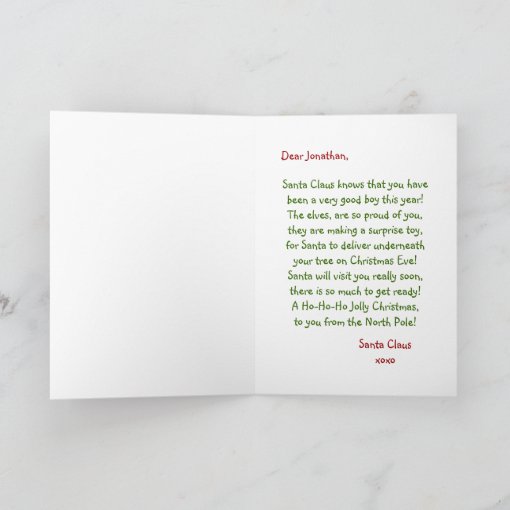 Dear Jonathan,
Santa Claus knows that you have
been a very good boy this year!
The elves, are so proud of you,
they are making a surprise toy,
for Santa to deliver underneath
your tree on Christmas Eve!
Santa will visit you really soon,
there is so much to get ready!
A Ho-Ho-Ho Jolly Christmas,
to you from the North Pole!
Santa Claus
xoxo